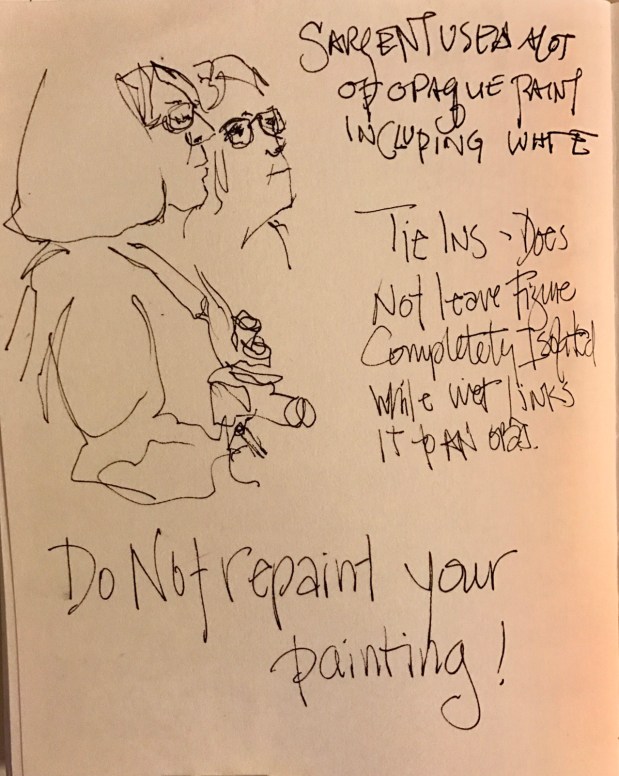 SARGENT USED A LOT
OF OPAQUE PAINT
INCLUDING WHITE
Tie INS > Does
Not leave Figure
Completety Isolated
While wet links
IT to AN
Do Not repaint your
painting!